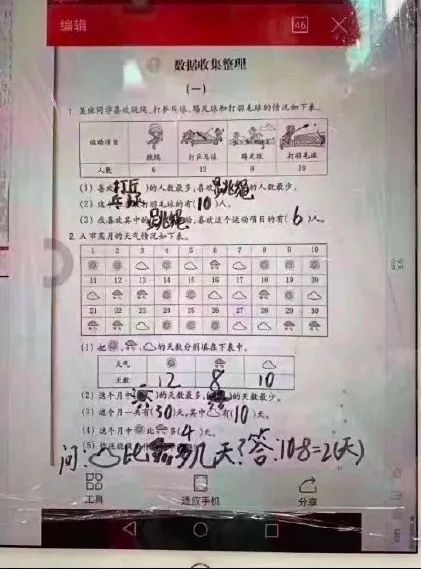 编辑
46
数据收集整理
(一)
1. 某班同学喜欢跳绳、打乒乓球、踢足球和打羽毛球的情况如下表。
运动项目 跳绳 打乒乓球 踢足球 打羽毛球
人数 6 12 9 10
(1) 喜欢(打乒乓球)的人数最多,喜欢(跳绳)的人数最少。
(2) 这 打羽毛球的有(10)人。
(3) 我喜欢其中的(跳绳)运动,喜欢这个运动项目的有(6)人。
2. 某月的天气情况如下表。
1 2 3 4 5 6 7 8 9 10
11 12 13 14 15 16 17 18 19 20
21 22 23 24 25 26 27 28 29 30
(1) 把 、 、 的天数分别填在下表中。
天气
天数 12 8 10
(2) 这个月中( )的天数最多,( )的天数最少。
(3) 这个月一共有(30)天,其中 有(10)天。
(4) 这个月中 比 多(4)天。
(5) 你还能提
问: 比 多几天?答:10-8=2(天)
工具 适应手机 分享